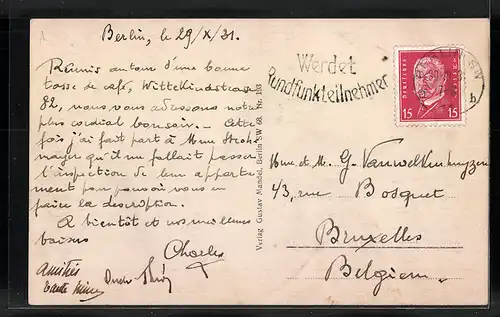 Berlin, le 29/X/31.
Réunis autour d'une bonne
tasse de café, Wittekindstrasse
82, nous vous adressons notre
plus cordial bonsoir. Cette
fois j'ai fait part à Mme
qu'il me fallait passer
l'inspection de leur apparte-
ment pour pouvoir vous en
faire la description.
A bientôt et nos meilleurs
baisers
Charles
Amitiés
tante Mimi
Verlag Gustav Mandel, Berlin SW 68. Nr. 193
Werdet
Rundfunkteilnehmer
DEUTSCHES REICH
15 15
SW
h
Mme et M. G. Vanwelkenhuyzen
43, rue Bosquet
Bruxelles
Belgien.